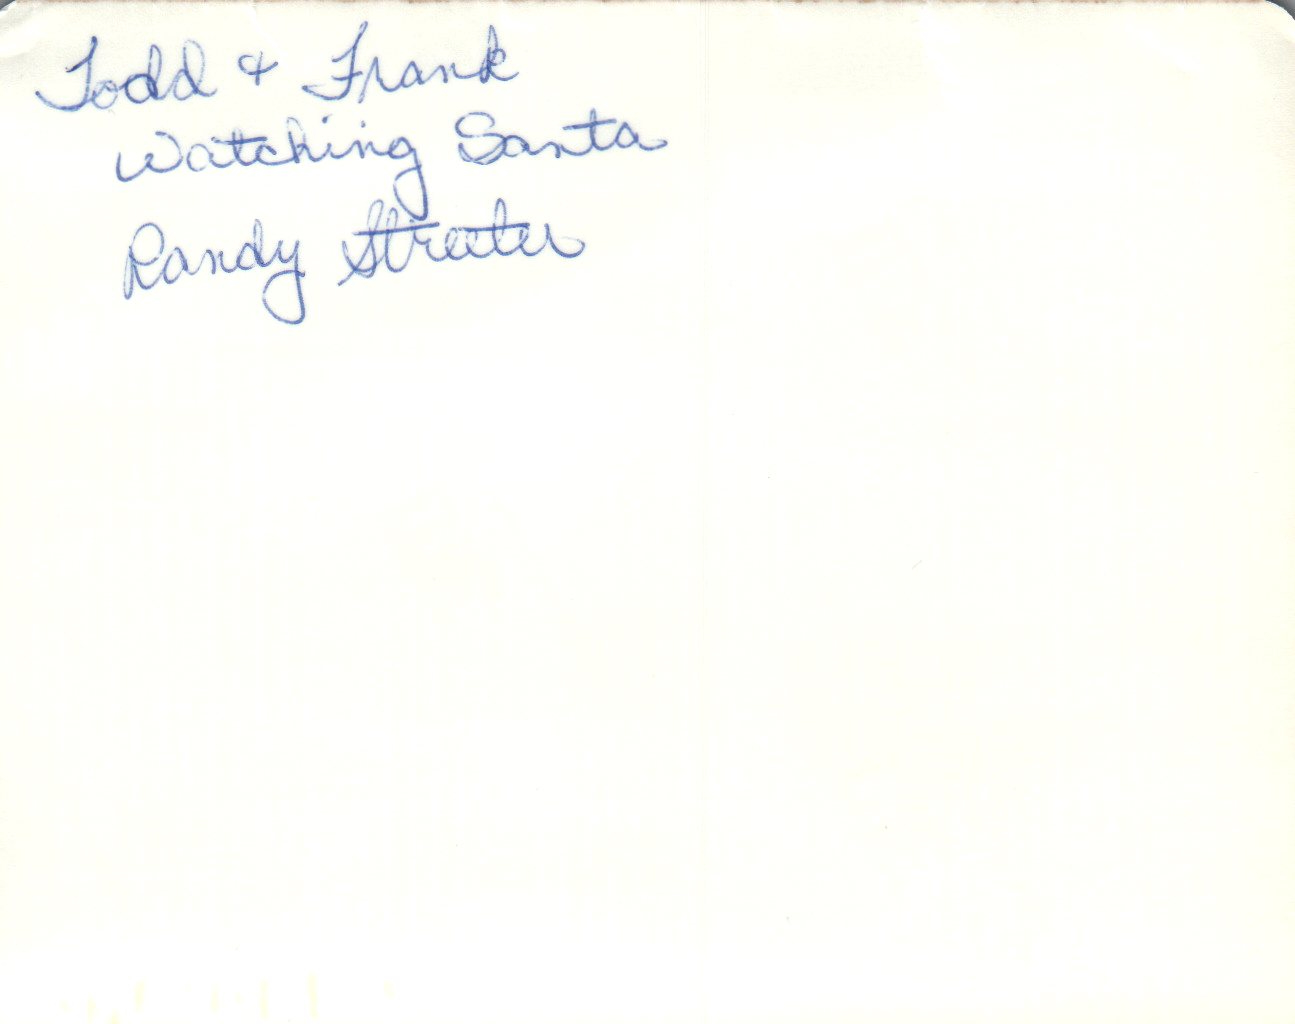 Todd & Frank
Watching Santa
Randy Streeter